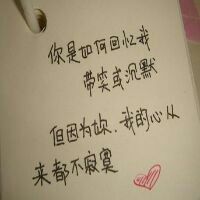 你是如何回忆我
带笑或沉默
但因为你、我的心从
来都不寂寞